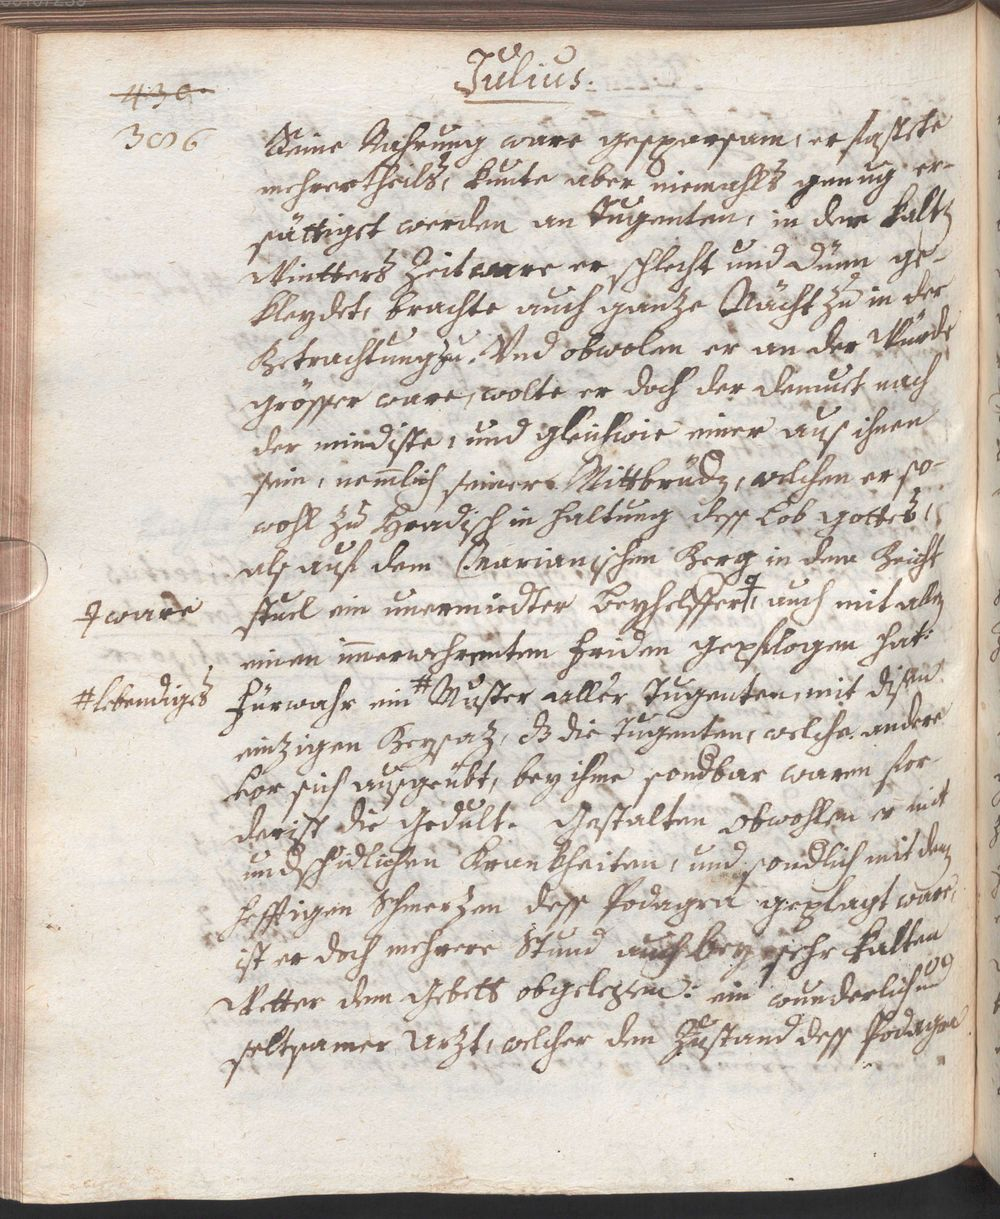 Julius.
430.
386
Seine Nahrung ware gesparsam, er fastete
mehrertheils, kunte aber niemahls genug er-
sättiget werden an Tugenten, in der kalt
Winters Zeit ware er schlecht und dünn ge-
kleydet, brachte auch gantze Nächt zu in der
Betrachtung zu. Und obwolen er an der Würde
grösser ware, wolte er doch der demut nach
der mindiste, und gleichwie einer aus ihnen
sein, nemlich seiner Mittbrüder, welchen er so-
wohl zu Hradisch in haltung dess Lob Gottes,
als auf dem Marianischen Berg in dem Beicht
stuel ein unermiedter beyhelffer ⚨, auch mit allen
einen immerwehrenten friden gepflogen hat.
⚨ ware
fürwahr ein # Muster aller Tugenten, mit disem
# lebendiges
eintzigen Beysatz, dz die Tugenten, welche andere
vor sich ausgeübt, bey ihme sondbar waren for-
derist die Gedult. Gestalten obwohlen er mit
undschidlichen Krankheiten, und sondlich mit dem
hefftigen Schmertzen dess Podagra geplagt ware,
ist er doch mehrere Stund auch bey sehr kalten
Wetter dem Gebett obgelegen: ein wunderlich und
seltsamer Artzt, welcher den Zustand dess Podagra